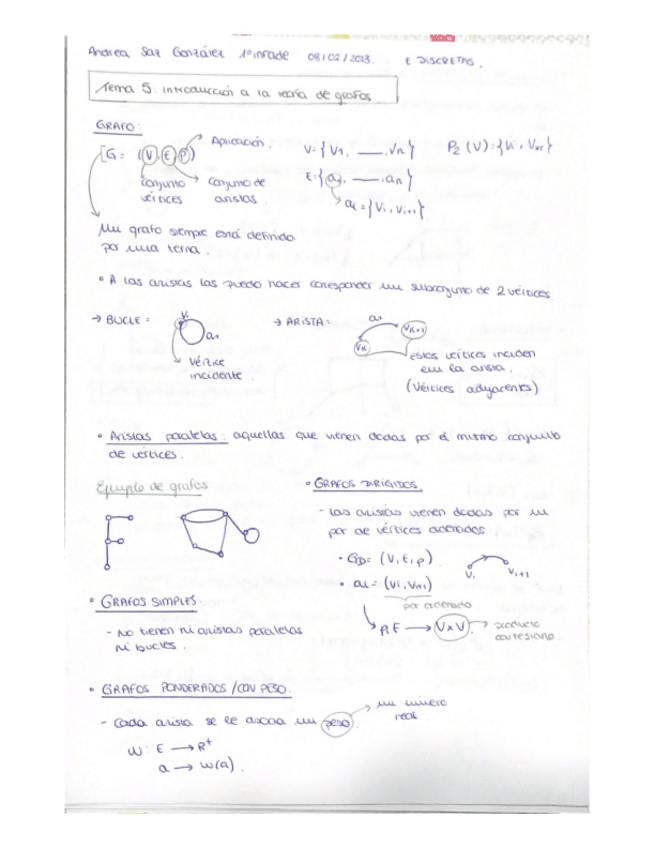 Andrea Saz González 1º inmade 08/02/2023. E DISCRETAS.
Tema 5: introducción a la teoría de grafos
GRAFO:
Aplicación.
G = (V, E, P)
V = {V1, ___, Vn}
P2 (V) = {Vi, Vi+1}
conjunto vértices
conjunto de aristas.
E = {a1, ___, an}
ai = {Vi, Vi+1}
Un grafo siempre está definido
por una terna.
• A las aristas las puedo hacer corresponder un subconjunto de 2 vértices.
→ BUCLE =
Vi
a1
vértice
incidente.
→ ARISTA =
a1
VK
VK+1
estos vértices inciden
en la arista.
(vértices adyacentes)
• Aristas paralelas: aquellas que vienen dadas por el mismo conjunto
de vértices.
Ejemplo de grafos
• GRAFOS DIRIGIDOS.
- las aristas vienen dadas por un
par de vértices ordenados
• GD = (V, E, P)
Vi
Vi+1
• ai = (Vi, Vi+1)
par ordenado
P: E → V x V
→ producto
cartesiano.
• GRAFOS SIMPLES.
- No tienen ni aristas paralelas
ni bucles.
• GRAFOS PONDERADOS / CON PESO.
- Cada arista se le asocia un peso
→ un número
real.
W: E → R+
a → w(a).